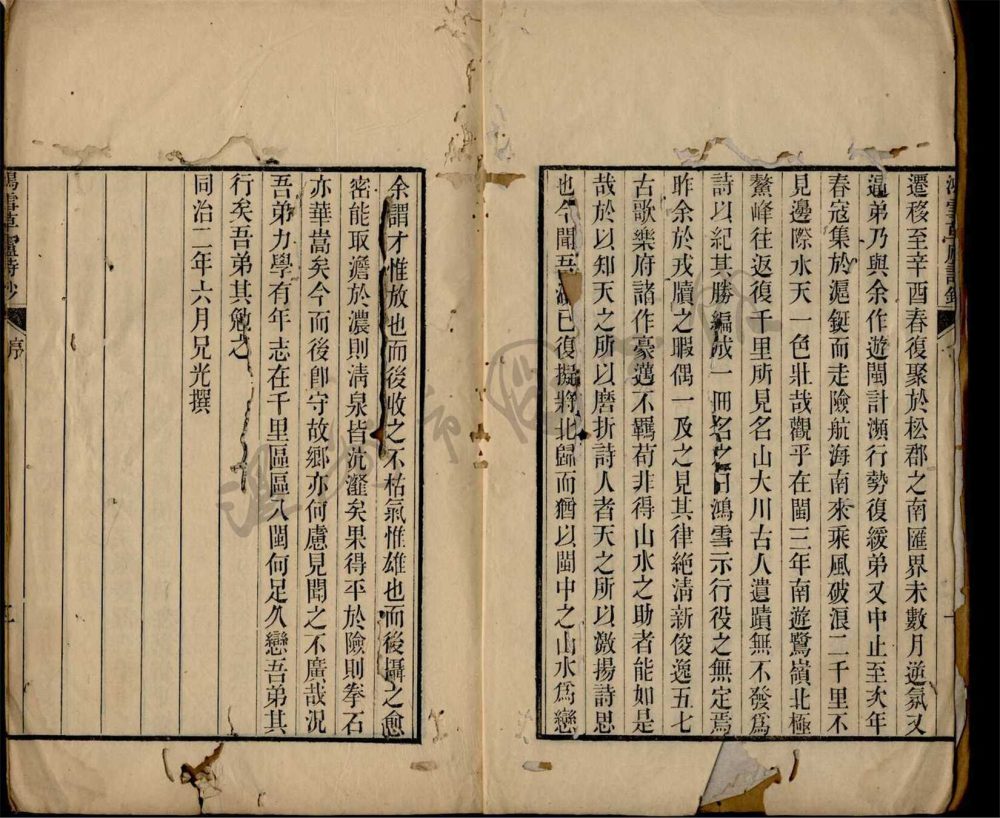 遷移至辛酉春復聚於松郡之南匯界未數月逆氛又
逼弟乃與余作遊閩計瀕行勢復緩弟又中止至次年
春寇集於滬鋌而走險航海南來乘風破浪二千里不
見邊際水天一色壯哉觀乎在閩三年南遊鷺嶺北極
鰲峰往返復千里所見名山大川古人遺蹟無不發爲
詩以紀其勝編成一冊名之曰鴻雪示行役之無定焉
昨余於戎牘之暇偶一及之見其律絶淸新俊逸五七
古歌樂府諸作豪邁不羈苟非得山水之助者能如是
哉於以知天之所以磨折詩人者天之所以激揚詩思
也今聞吾已復擬將北歸而猶以閩中之山水爲戀
余謂才惟放也而後收之不枯氣惟雄也而後攝之愈
密能取澹於濃則淸泉皆沆瀣矣果得平於險則拳石
亦華嵩矣今而後卽守故鄉亦何慮見聞之不廣哉況
吾弟力學有年志在千里區區八閩何足久戀吾弟其
行矣吾弟其勉之
同治二年六月兄光撰
雪草廬詩鈔
序